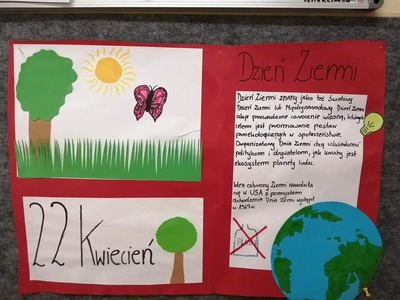 Dzień Ziemi
Dzień Ziemi znany jako też Światowy
Dzień Ziemi lub Międzynarodowy Dzień Ziemi
akcje prowadzone corocznie wiosną, których
celem jest promowanie postaw
proekologicznych w społeczeństwie.
Organizatorzy Dnia Ziemi chcą uświadomić
politykom i obywatelom, jak kruchy jest
ekosystem planety ludzi.
Idea ochrony Ziemi narodziła
się w USA z pomysłem
obchodzenia Dnia Ziemi wystąpił
w 1969 r.
22 Kwiecień